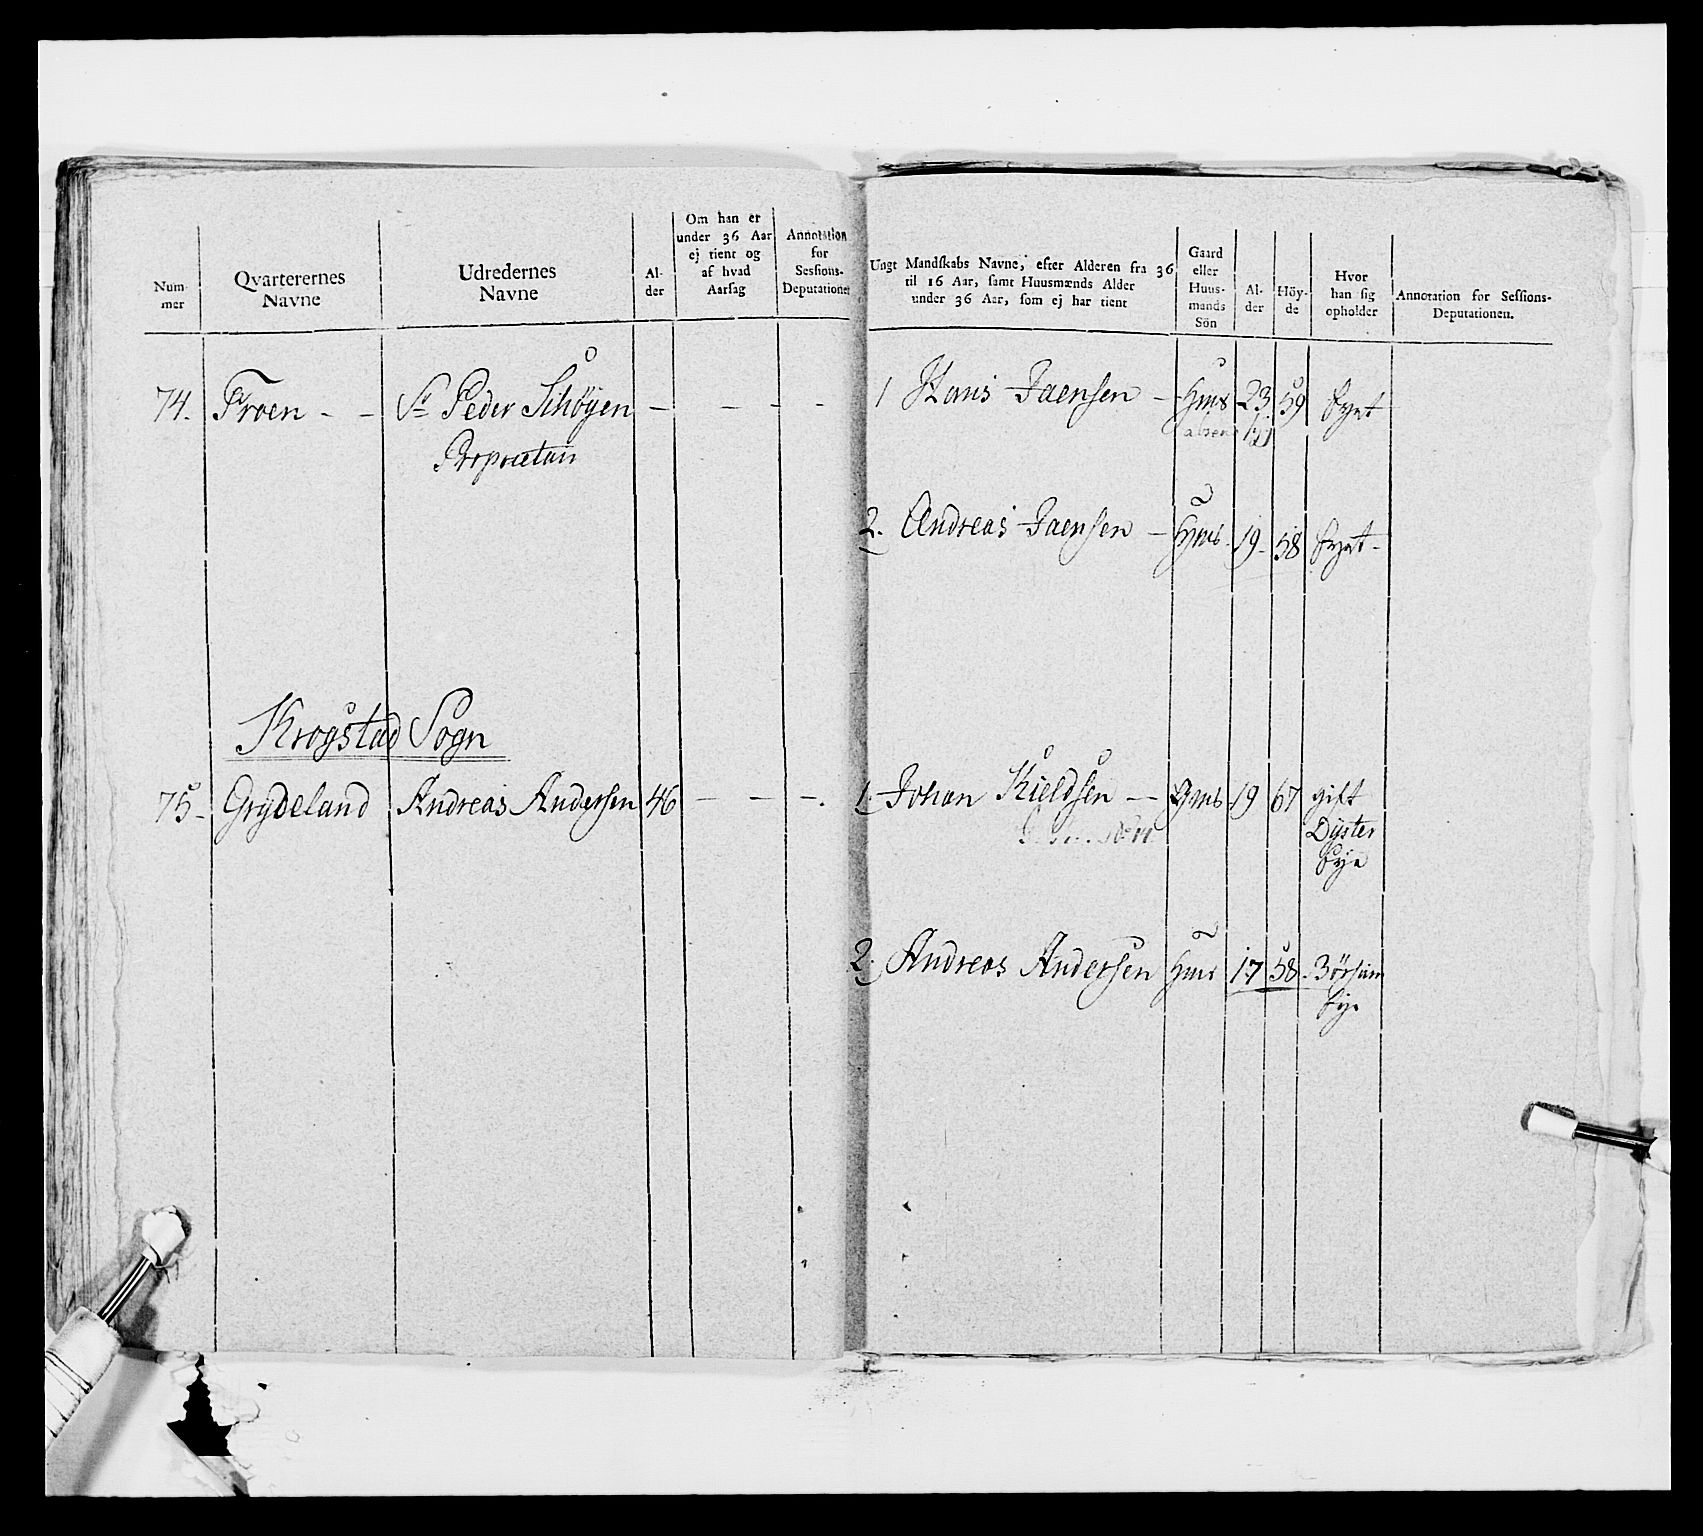 Num-
mer
Qvarterernes
Navne
Udredernes
Navne
Al-
der
Om han er
under 36 Aar
ej tient og
af hvad
Aarsag
Annotation
for
Sessions-
Deputationen
74. Froen - - Sr Peder Schøyen - - - -
Proprietair
Krogstad Sogn
75. Grydeland Andreas Andersen 46 - - -.
Ungt Mandskabs Navne, efter Alderen fra 36
til 16 Aar, samt Huusmænds Alder
under 36 Aar, som ej har tient
Gaard
eller
Huus-
mands
Sön
Al-
der
Höy-
de
Hvor
han sig
opholder
Annotation for Sessions-
Deputationen.
1 Hans Jaensen - Hms 23 59
2. Andreas Jaensen - Hms 19 58
1. Johan Kieldsen - Gms 19 67 gift
Dyster
2. Andreas Andersen Hms 17 58